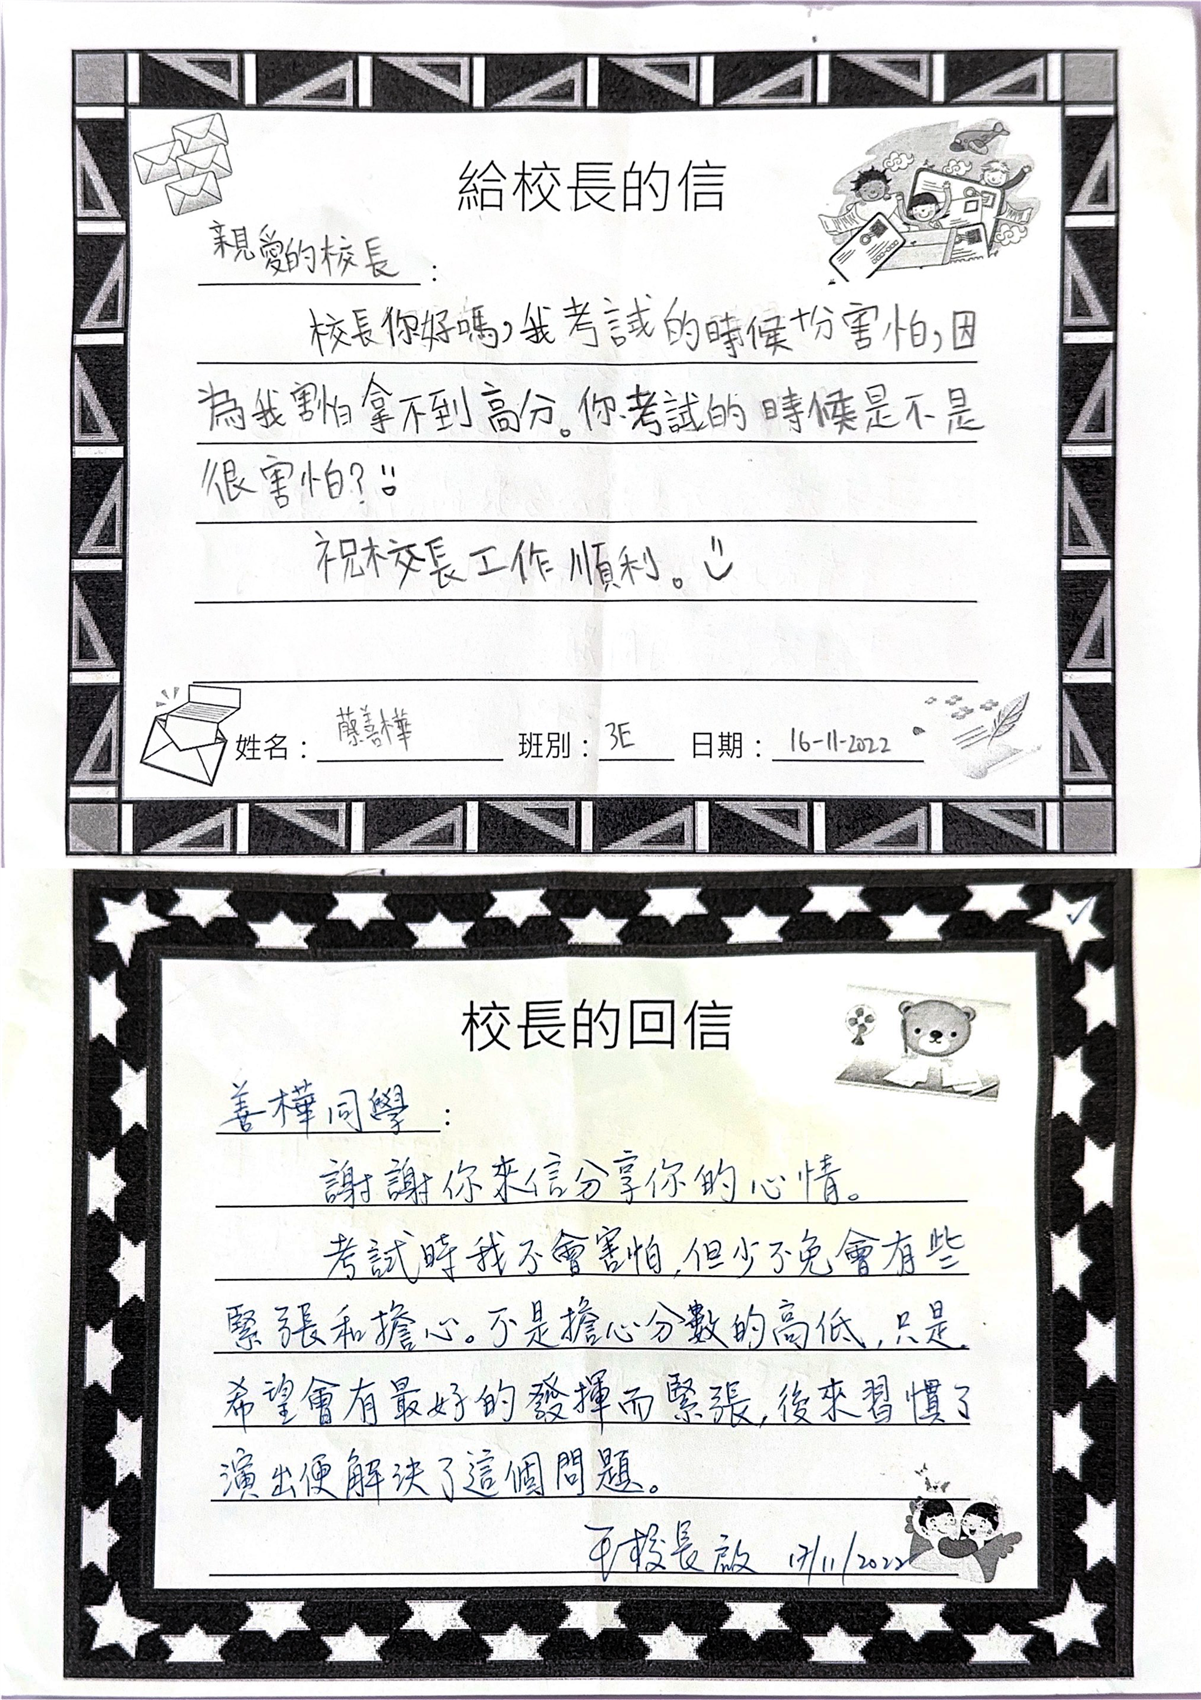 給校長的信
親愛的校長：
校長你好嗎，我考試的時候十分害怕，因
為我害怕拿不到高分。你考試的時候是不是
很害怕？
祝校長工作順利。
姓名：蔡善樺 班別：3E 日期：16-11-2022
校長的回信
善樺同學：
謝謝你來信分享你的心情。
考試時我不會害怕，但少不免會有些
緊張和擔心。不是擔心分數的高低，只是
希望會有最好的發揮而緊張，後來習慣了
演出便解決了這個問題。
校長啟 17/11/2022